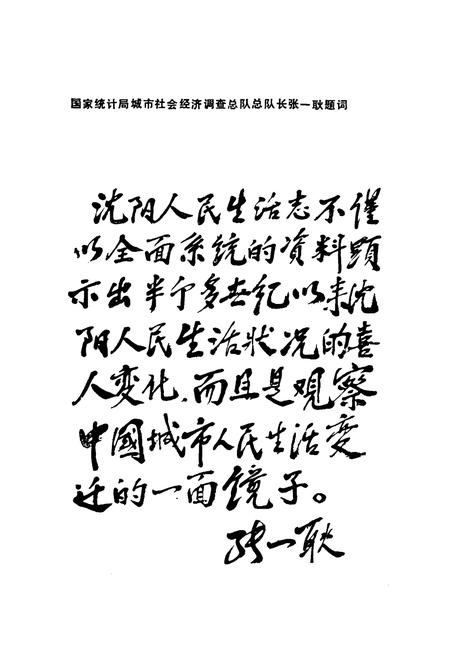 国家统计局城市社会经济调查总队总队长张一耿题词
沈阳人民生活志不僅
以全面系統的资料顕
示出半个多世纪以来沈
阳人民生活状况的喜
人变化，而且是观察
中國城市人民生活变
迁的一面镜子。
张一耿